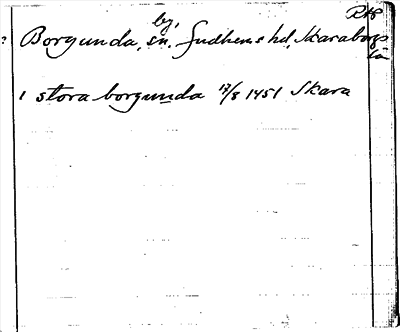 RAP
by,
? Borgunda, sn. Gudhems hd, Skaraborgs
län
i stora borgunda 17/8 1451 Skara